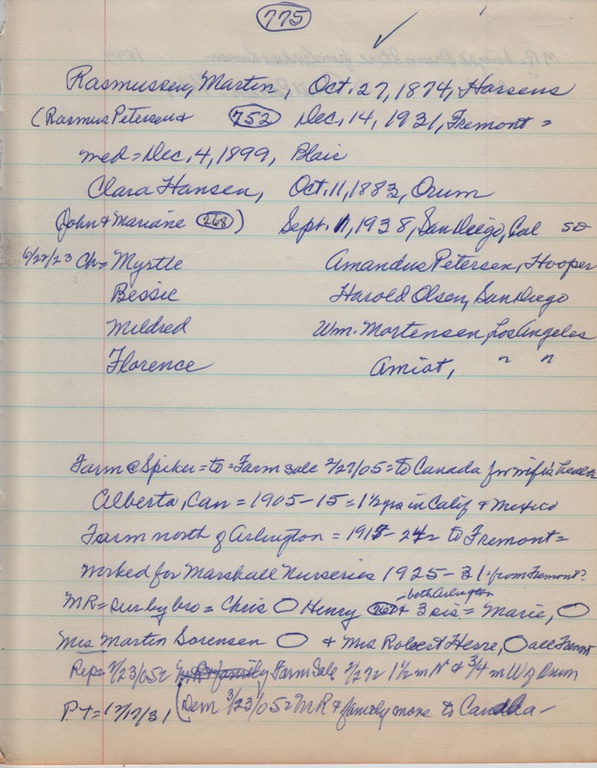 775
Rasmussen, Martin, Oct. 27, 1874, Horsens
(Rasmus Petersen & 752 Dec. 14, 1931, Fremont =
med = Dec. 4, 1899, Blair
Clara Hansen, Oct. 11, 1883, Orum
(John & Mariane 268) Sept. 11, 1938, San Diego, Cal
6/22/23 Ch = Myrtle Amandus Petersen, Hooper
Bessie Harold Olsen, San Diego
Mildred Wm. Mortensen, Los Angeles
Florence Amiot, " "
Farm @ Spiker = to = Farm sale 2/27/05 = to Canada for wife's health
Alberta, Can = 1905-15 = 1½ yrs in Calif & Mexico
Farm north of Arlington = 1915-24 = to Fremont =
worked for Marshall Nurseries 1925-31 - from Fremont?
both Arlington
MR = sur by bro = Chris Henry & 3 sis = Marie,
Mrs Martin Sorensen & Mrs Robert Herre, all Fremont
Rep = 2/23/05 = MR & family Farm Sale 2/27 = 1½ m N & ¾ m W of Orum
PT = 12/17/31 (Dem 3/23/05 = MR & family move to Canada -